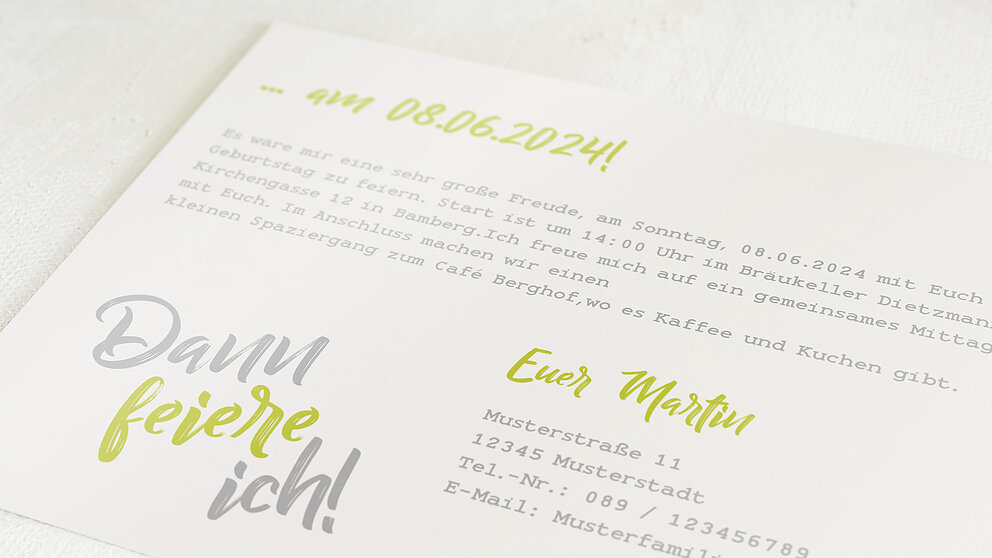 ... am 08.06.2024!
Es wäre mir eine sehr große Freude, am Sonntag, 08.06.2024 mit Euch
Geburtstag zu feiern. Start ist um 14:00 Uhr im Bräukeller Dietzmann
Kirchengasse 12 in Bamberg.Ich freue mich auf ein gemeinsames Mittag
mit Euch. Im Anschluss machen wir einen
kleinen Spaziergang zum Café Berghof,wo es Kaffee und Kuchen gibt.
Dann
feiere
ich!
Euer Martin
Musterstraße 11
12345 Musterstadt
Tel.-Nr.: 089 / 123456789
E-Mail: Musterfamili